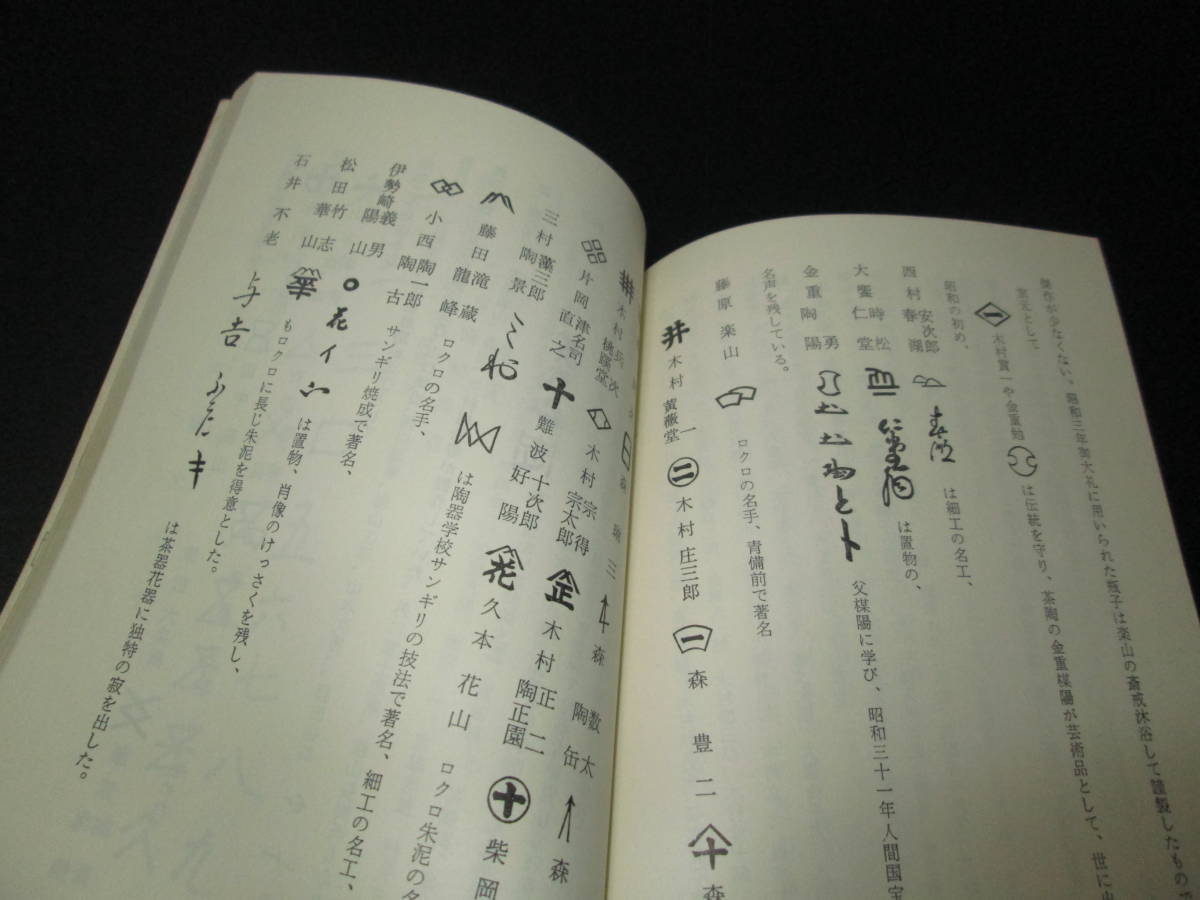 傑作が少なくない。昭和三年御大礼に用いられた瓶子は楽山の斎戒沐浴して謹製したもので
木村貫一や金重勉 は伝統を守り、茶陶の金重楳陽が芸術品として、世に
昭和の初め、
西村春湖 安次郎 は細工の名工、
大饗仁堂 時松 は置物の、
金重陶陽 勇 父楳陽に学び、昭和三十一年人間国宝
名声を残している。
藤原楽山 ロクロの名手、青備前で著名
木村一 黄薇堂 木村庄三郎 森豊二 森
木村長次 桃蹊堂 森 三 森数太 陶缶 森
片岡津名司 直之 木村宗太郎 宗得 木村正二 陶正園 柴岡
三村藻三郎 陶景 難波十次郎 好陽 久本花山 ロクロ朱泥の名
藤田滝蔵 龍峰 ロクロの名手、 は陶器学校サンギリの技法で著名、細工の名工、
小西陶一郎 陶古 サンギリ焼成で著名、
伊勢崎義男 陽山 は置物、肖像のけっさくを残し、
松田竹志 華山 もロクロに長じ朱泥を得意とした。
石井不老 は茶器花器に独特の寂を出した。